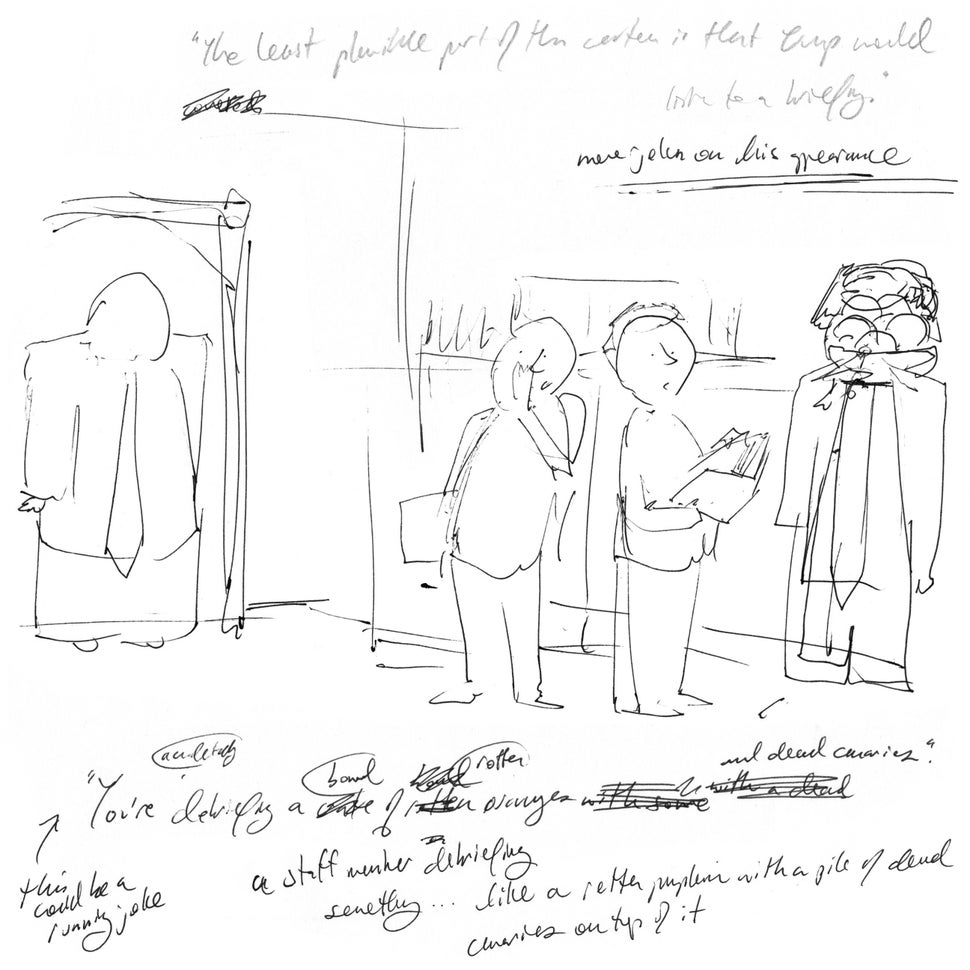 "The least plausible part of this cartoon is that Trump would
listen to a briefing."
more jokes on his appearance
accidentally
bowl rotten and dead canaries".
"You're debriefing a of oranges
a staff member debriefing
something... like a rotten pumpkin with a pile of dead
canaries on top of it
this
could be a
running joke